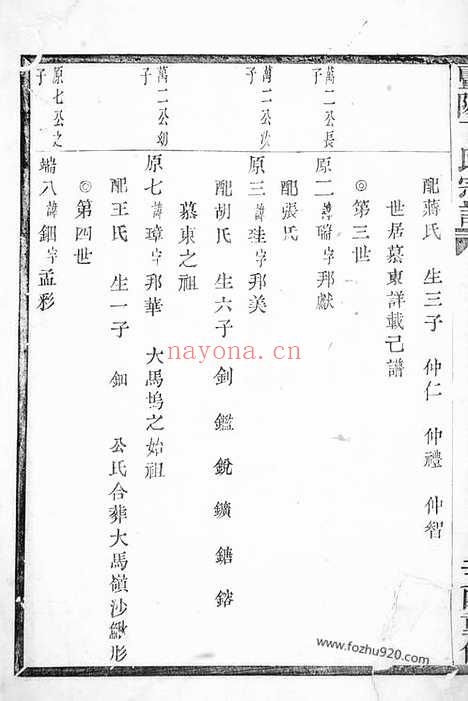 配蔣氏 生三子 仲仁 仲禮 仲智
世居墓東詳載己譜
◎第三世
萬二公長子
原二諱瑞字邦獻
配張氏
萬二公次子
原三諱珪字邦美
配胡氏 生六子 釗 鑑 銳 鑛 鎕 鎔
墓東之祖
萬二公幼子
原七諱璋字邦華 大馬塢之始祖
配王氏 生一子 鈿 公氏合葬大馬嶺沙鰍形
◎第四世
原七公之子
端八諱鈿字孟彩
nayona.cn
www.fozhu920.com